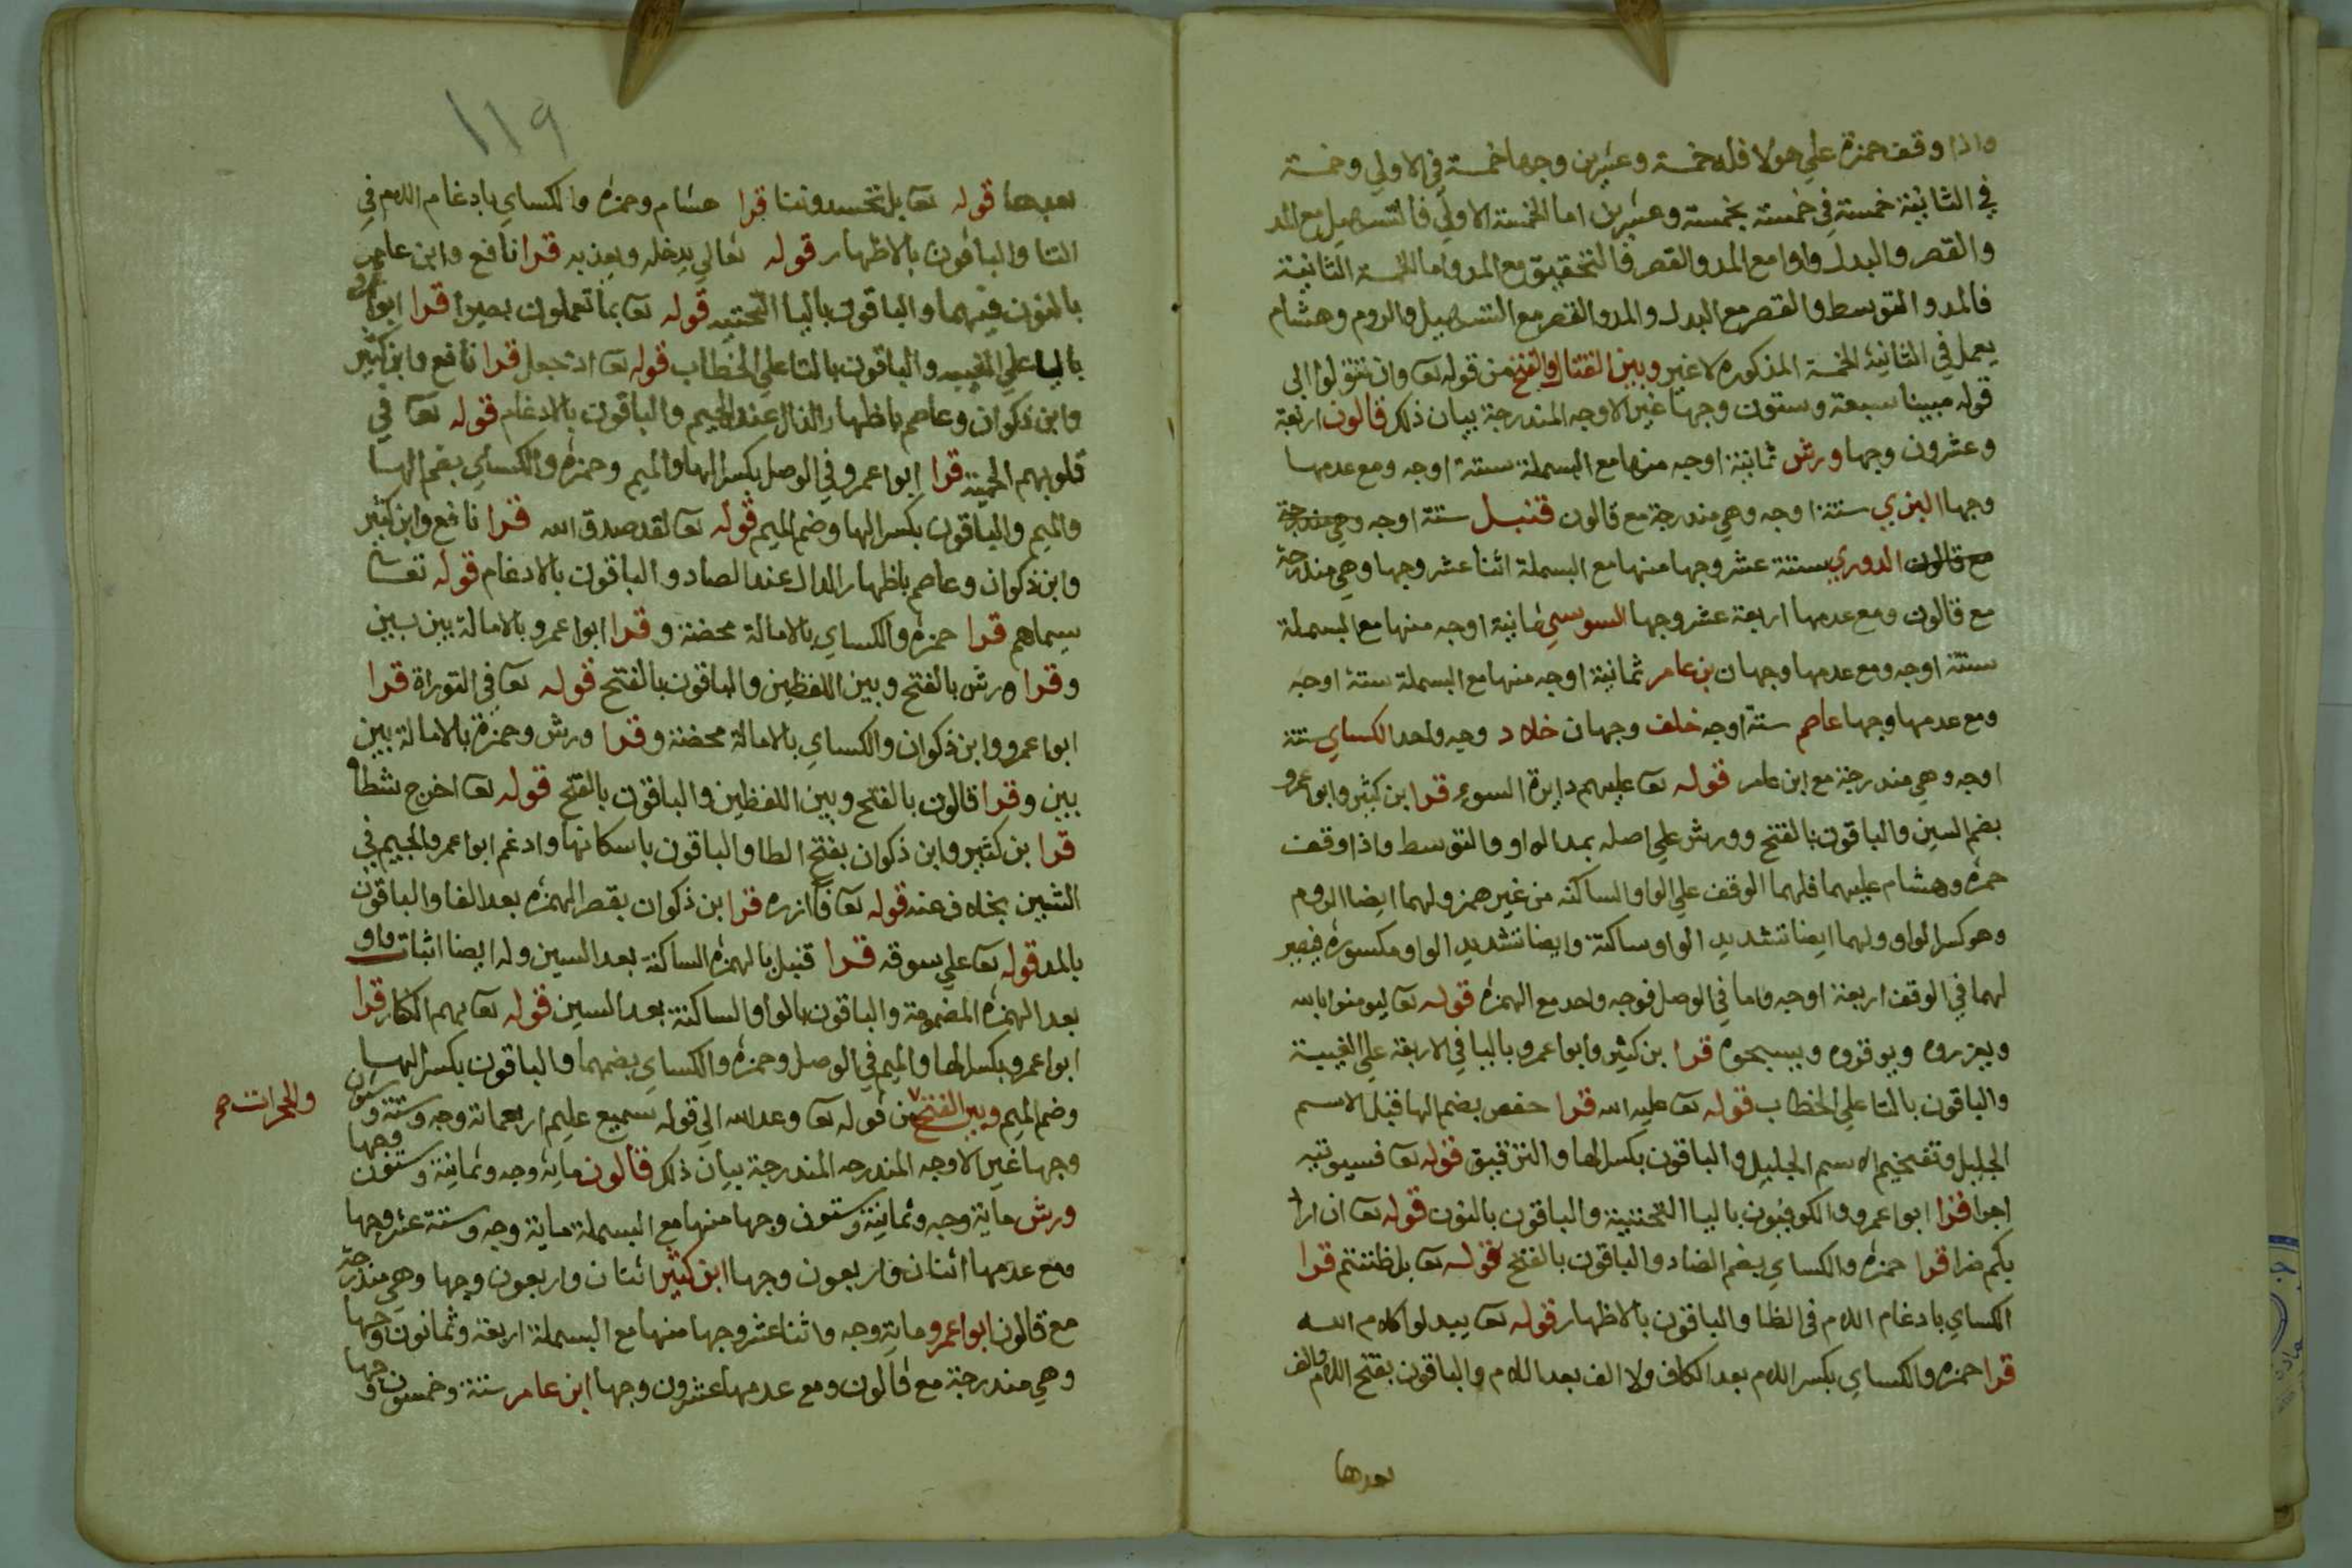 واذا وقف حمزة علي هولا فله خمسة وعشرين وجها خمسة في الاولي وخمسة
في الثانية خمسة في خمسة بخمسة وعشرين اما الخمسة الاولي فالتسهيل مع المد
والقصر والبدل واوا مع المد والقصر فالتحقيق مع المد واما الخمسة الثانية
فالمد والتوسط والقصر مع البدل والمد والقصر مع التسهيل والروم وهشام
يعمل في الثانية الخمسة المذكوره لا غير وبين القتال والفتح من قوله تعا وان تتولوا الي
قوله مبينا سبعة وستون وجها غير الاوجه المندرجة بيان ذلك قالون اربعة
وعشرون وجها ورش ثمانية اوجه منها مع البسملة ستة اوجه ومع عدمها
وجها البزي ستة اوجه وهي مندرجة مع قالون قنبل ستة اوجه وهي مندرجة
مع قالون الدوري ستة عشر وجها منها مع البسملة اثنا عشر وجها وهي مندرجة
مع قالون ومع عدمها اربعة عشر وجها السوسي ثمانية اوجه منها مع البسملة
ستة اوجه ومع عدمها وجهان بن عامر ثمانية اوجه منها مع البسملة ستة اوجه
ومع عدمها وجها عاصم ستة اوجه خلف وجهان خلاد وجه واحد الكساي ستة
اوجه وهي مندرجة مع ابن عامر قوله تعا عليهم دايرة السوء قرا بن كثير وابو عمرو
بضم السين والباقون بالفتح وورش علي اصله بمد الواو والتوسط واذا وقف
حمزه وهشام عليهما فلهما الوقف علي الواو الساكنه من غير همز ولهما ايضا الروم
وهو كسر الواو ولهما ايضا تشديد الواو ساكنة وايضا تشديد الواو مكسوره فيصير
لهما في الوقف اربعة اوجه واما في الوصل فوجه واحد مع الهمزه قوله تعا ليومنوا بالله
ويعزروه ويوقروه ويسبحوه قرا بن كثير وابوا عمرو باليا في الاربعة علي الغيبة
والباقون بالتا علي الخطاب قوله تعا عليه الله قرا حفص بضم الها قبل الاسم
الجليل وتفخيم الاسم الجليل والباقون بكسر الها والترقيق قوله تعا فسيوتيه
اجرا قرا ابوا عمرو والكوفيون باليا التحتيية والباقون بالنون قوله تعا ان اراد
بكم ضرا قرا حمزه والكساي بضم الضاد والباقون بالفتح قوله تعا بل ظننتم قرا
الكساي بادغام اللام في الظا والباقون بالاظهار قوله تعا يبدلوا كلام الله
قرا حمزه والكساي بكسر اللام بعد الكاف ولا الف بعد اللام والباقون بفتح اللام والف
بعدها
١١٩
بعدها قوله تعا بل تحسدوننا قرا هشام وحمزه والكساي بادغام اللام في
التا والباقون بالاظهار قوله تعالي يدخله ويعذبه قرا نافع وابن عامر
بالنون فيهما والباقون باليا التحتيه قوله تعا بما تعملون بصيرا قرا ابوا عمرو
باليا علي الغيبه والباقون بالتا علي الخطاب قوله تعا اذ جعل قرا نافع وابن كثير
وابن ذكوان وعاصم باظهار الذال عند الجيم والباقون بالادغام قوله تعا في
قلوبهم الحمية قرا ابوا عمرو في الوصل بكسر الها والميم وحمزه والكساي بضم الها
والميم والباقون بكسر الها وضم الميم قوله تعا لقد صدق الله قرا نافع وابن كثير
وابن ذكوان وعاصم باظهار الدال عند الصاد والباقون بالادغام قوله تعا
سيماهم قرا حمزه والكساي بالامالة محضة وقرا ابوا عمرو بالامالة بين بين
وقرا ورش بالفتح وبين اللفظين والباقون بالفتح قوله تعا في التوراة قرا
ابوا عمرو وابن ذكوان والكساي بالامالة محضة وقرا ورش وحمزة بالامالة بين
بين وقرا قالون بالفتح وبين اللفظين والباقون بالفتح قوله تعا اخرج شطاه
قرا بن كثير وابن ذكوان بفتح الطا والباقون باسكانها وادغم ابوا عمرو الجيم في
الشين بخلاف عنه قوله تعا فازره قرا بن ذكوان بقصر الهمزه بعد الفا والباقون
بالمد قوله تعا علي سوقه قرا قنبل بالهمزه الساكنة بعد السين وله ايضا اثبات واو
بعد الهمزه المضمومة والباقون بالواو الساكنة بعد السين قوله تعا بهم الكفار قرا
ابوا عمرو بكسر الها والميم في الوصل وحمزه والكساي بضمهما والباقون بكسر الها
وضم الميم وبين الفتح من قوله تعا وعد الله الي قوله سميع عليم اربعماتة وجه وستة وستون
والحجرات صح
وجها غير الاوجه المندرجه المندرجة بيان ذلك قالون ماية وجه وثمانية وستون وجها
ورش ماية وجه وثمانية وستون وجها منها مع البسملة ماية وجه وستة عشر وجها
ومع عدمها اثنان واربعون وجها ابن كثير اثنان واربعون وجها وهي مندرجة
مع قالون ابوا عمرو ماية وجه واثنا عشر وجها منها مع البسملة اربعة وثمانون وجها
وهي مندرجة مع قالون ومع عدمها عشرون وجها ابن عامر ستة وخمسون وجها